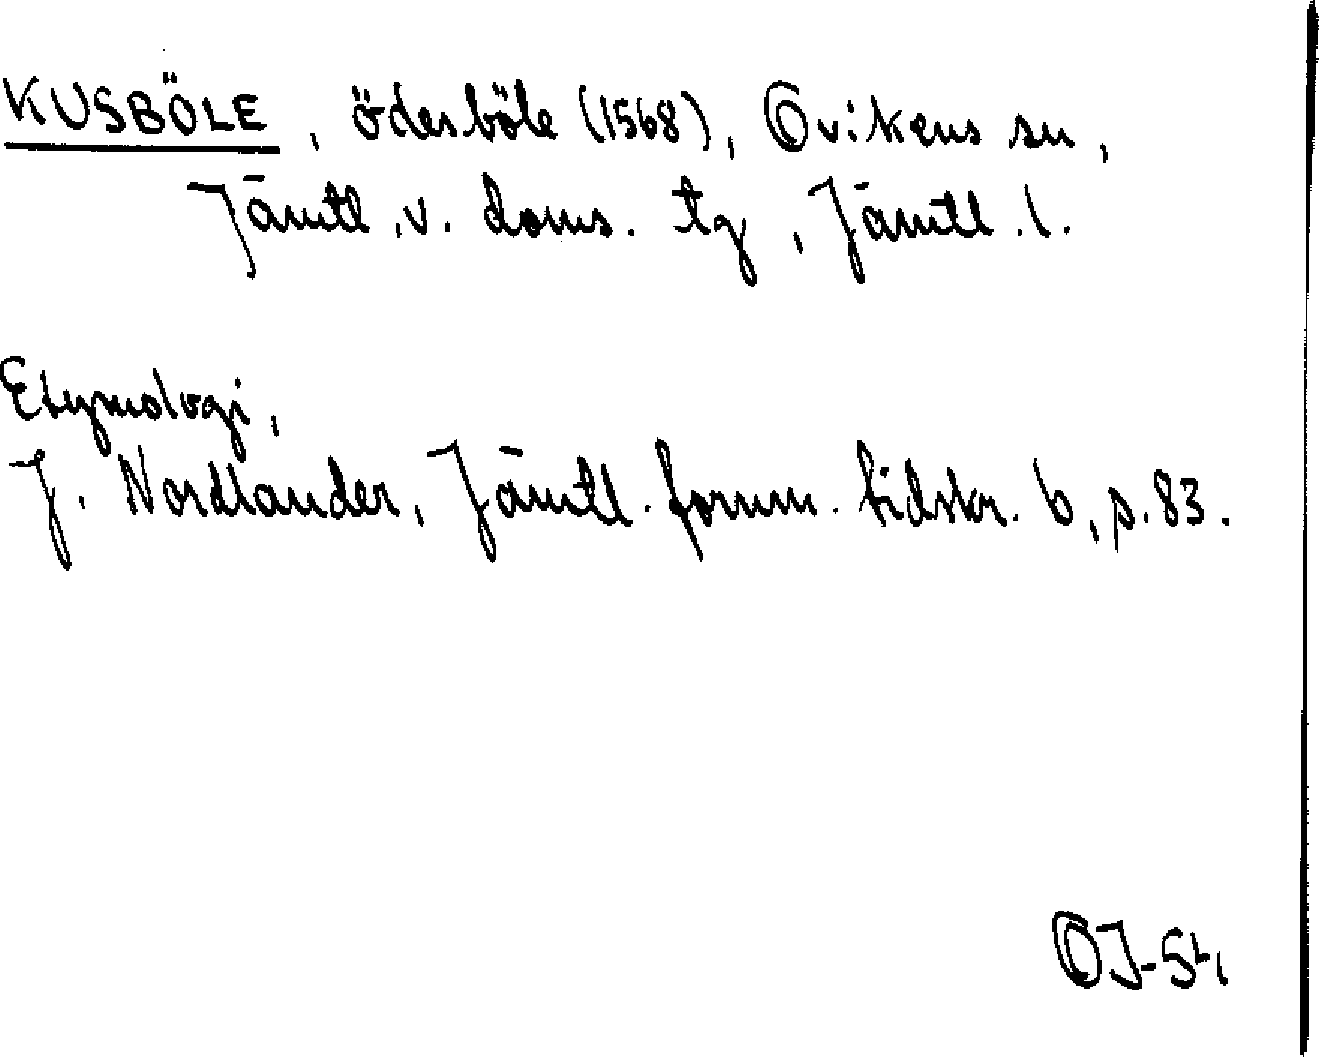 KUSBÖLE, ödesböle (1568), Ovikens sn,
Jämtl. v. doms. tg, Jämtl. l.
Etymologi,
J. Nordlander, Jämtl. fornm. tidskr. 6, p. 83.